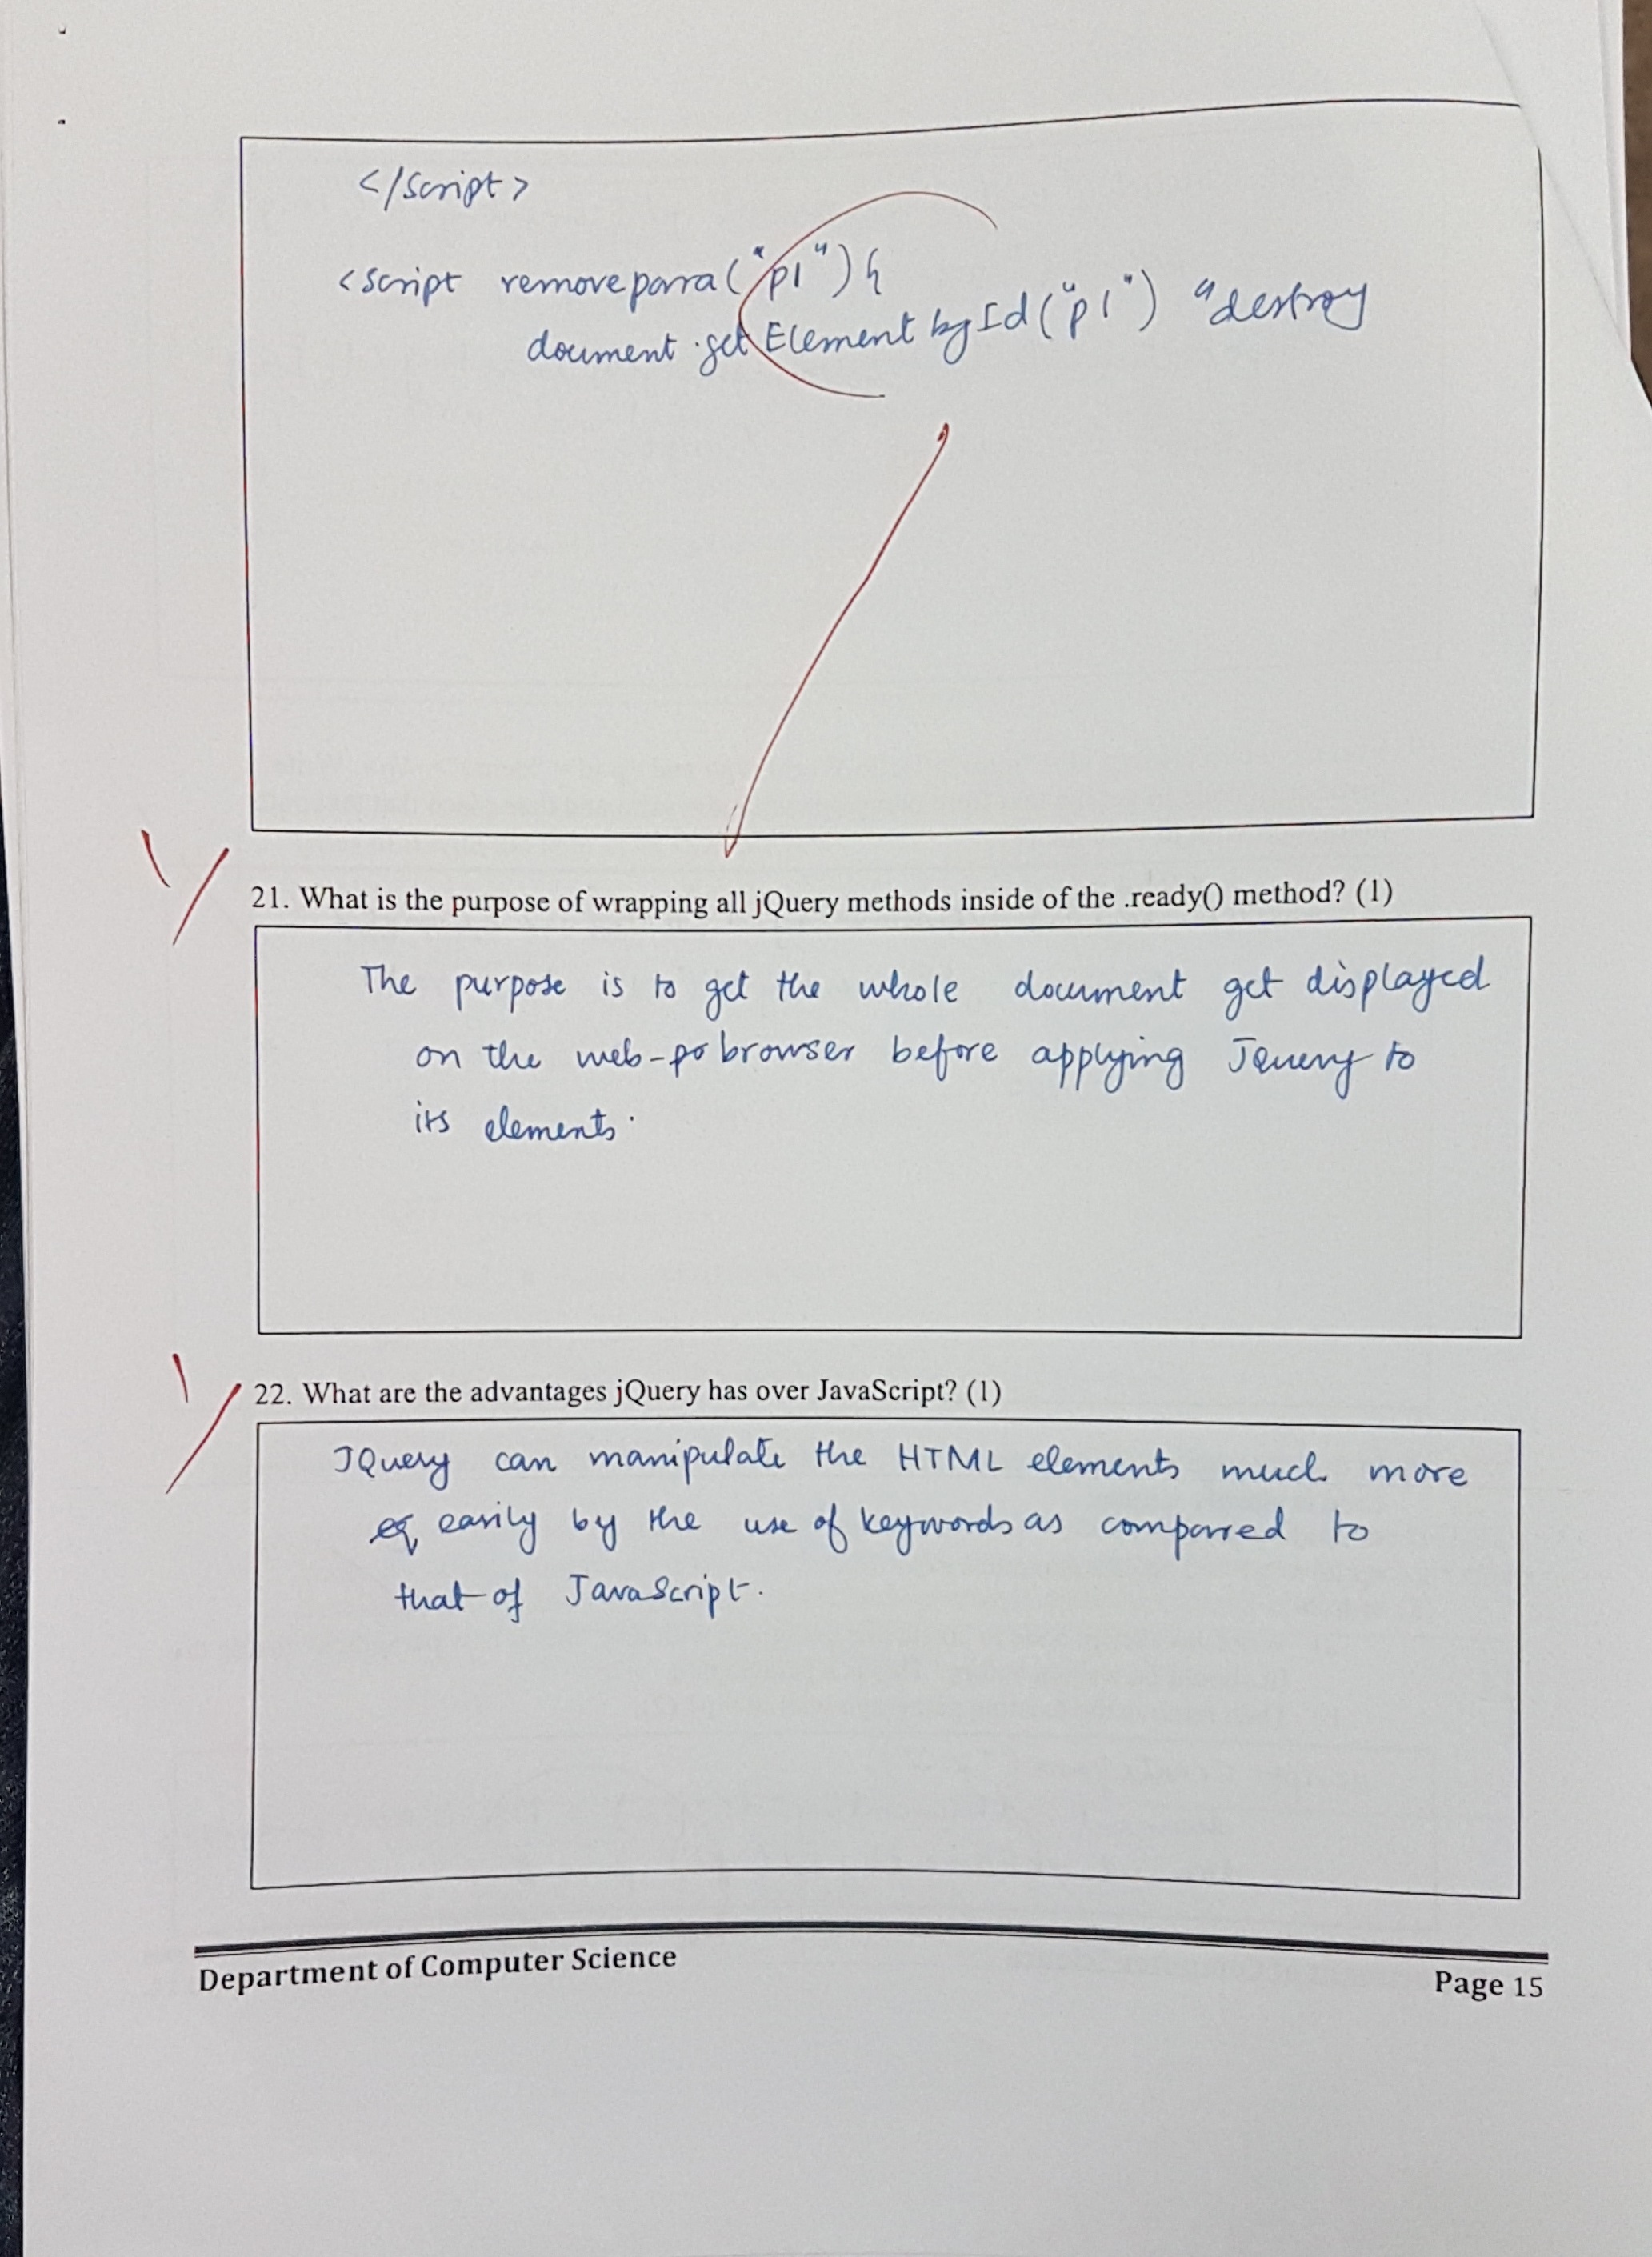 </script>
<script removepara("p1"){
document.getElement byId("p1") "destroy
21. What is the purpose of wrapping all jQuery methods inside of the .ready() method? (1)
The purpose is to get the whole document get displayed
on the web-po browser before applying JQuery to
its elements.
22. What are the advantages jQuery has over JavaScript? (1)
JQuery can manipulate the HTML elements much more
easily by the use of keywords as compared to
that of JavaScript.
Department of Computer Science
Page 15